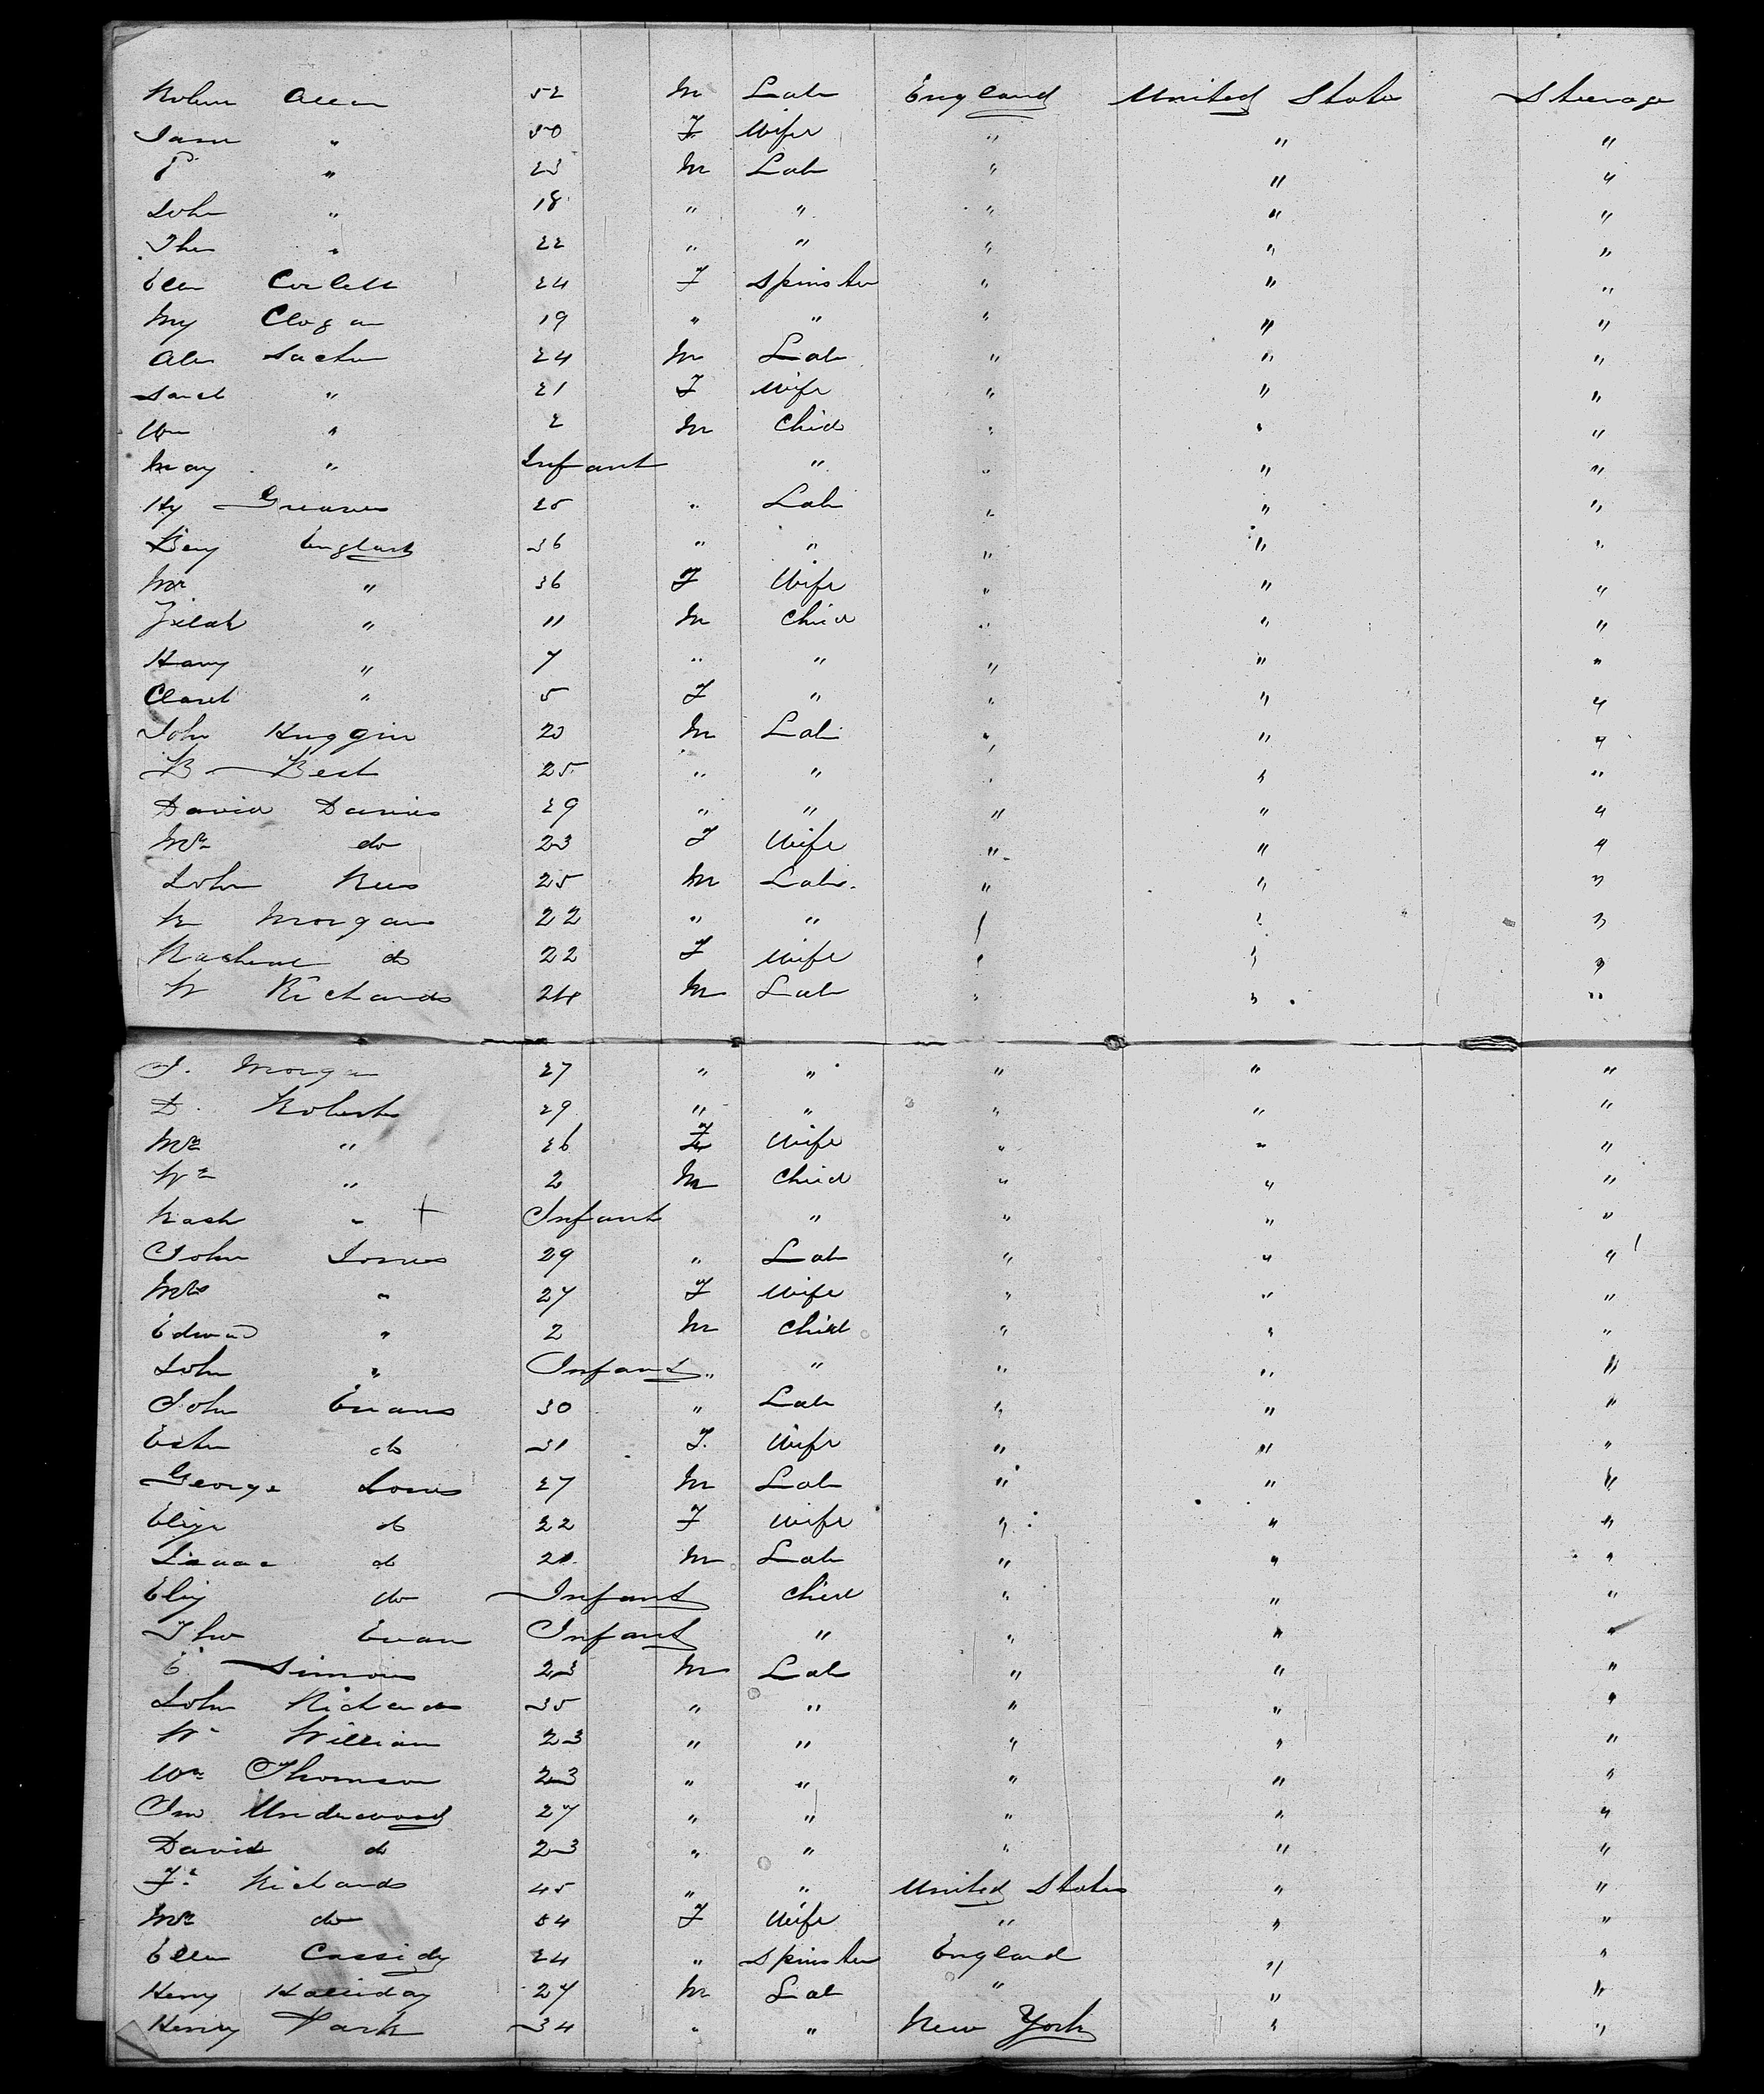 Robert Allen 52 M Lab England United States Steerage
Jane " 50 F Wife " " "
P " 23 M Lab " " "
John " 18 " " " " "
Tho " 22 " " " " "
Ellen Corlett 24 F Spinster " " "
My Clogan 19 " " " " "
Alex 24 M Lab " " "
Sarah " 21 F Wife " " "
Wm " 2 M Child " " "
May " Infant " " " "
Hy Greaves 25 " Lab " " "
Benj England 36 " " " " "
Mrs " 36 F Wife " " "
Zilah " 11 M Child " " "
Harry " 7 " " " " "
Claret " 5 F " " " "
John Huggin 20 M Lab " " "
B Best 25 " " " " "
David Davies 29 " " " " "
Mrs do 23 F Wife " " "
John Rees 25 M Lab. " " "
R Morgan 22 " " " " "
Racheal do 22 F Wife " " "
W Richards 24 M Lab " " "
J. Morgan 27 " " " " "
D. Roberts 29 " " " " "
Mrs " 26 F Wife " " "
Wm " 2 M Child " " "
Rach " + Infant " " " "
John Jones 29 " Lab " " "
Mrs " 27 F Wife " " "
Edward " 2 M Child " " "
John " Infant " " " " "
John Evans 30 " Lab " " "
Esther do 31 F. Wife " " "
George Jones 27 M Lab " " "
Eliza do 22 F Wife " " "
Isaac do M Lab " " "
Eliz do Infant Child " " "
Tho Evan Infant " " " "
E. Simons 23 M Lab " " "
John Richards 35 " " " " "
Wm William 23 " " " " "
Wm Thomson 23 " " " " "
Jno Underwood 27 " " " " "
David do 23 " " " " "
Richards 45 " " United States " "
Mrs do F Wife " " "
Ellen Cassidy 24 " Spinster England " "
Henry Halliday 27 M Lab " " "
Henry Park 34 " " New York " "